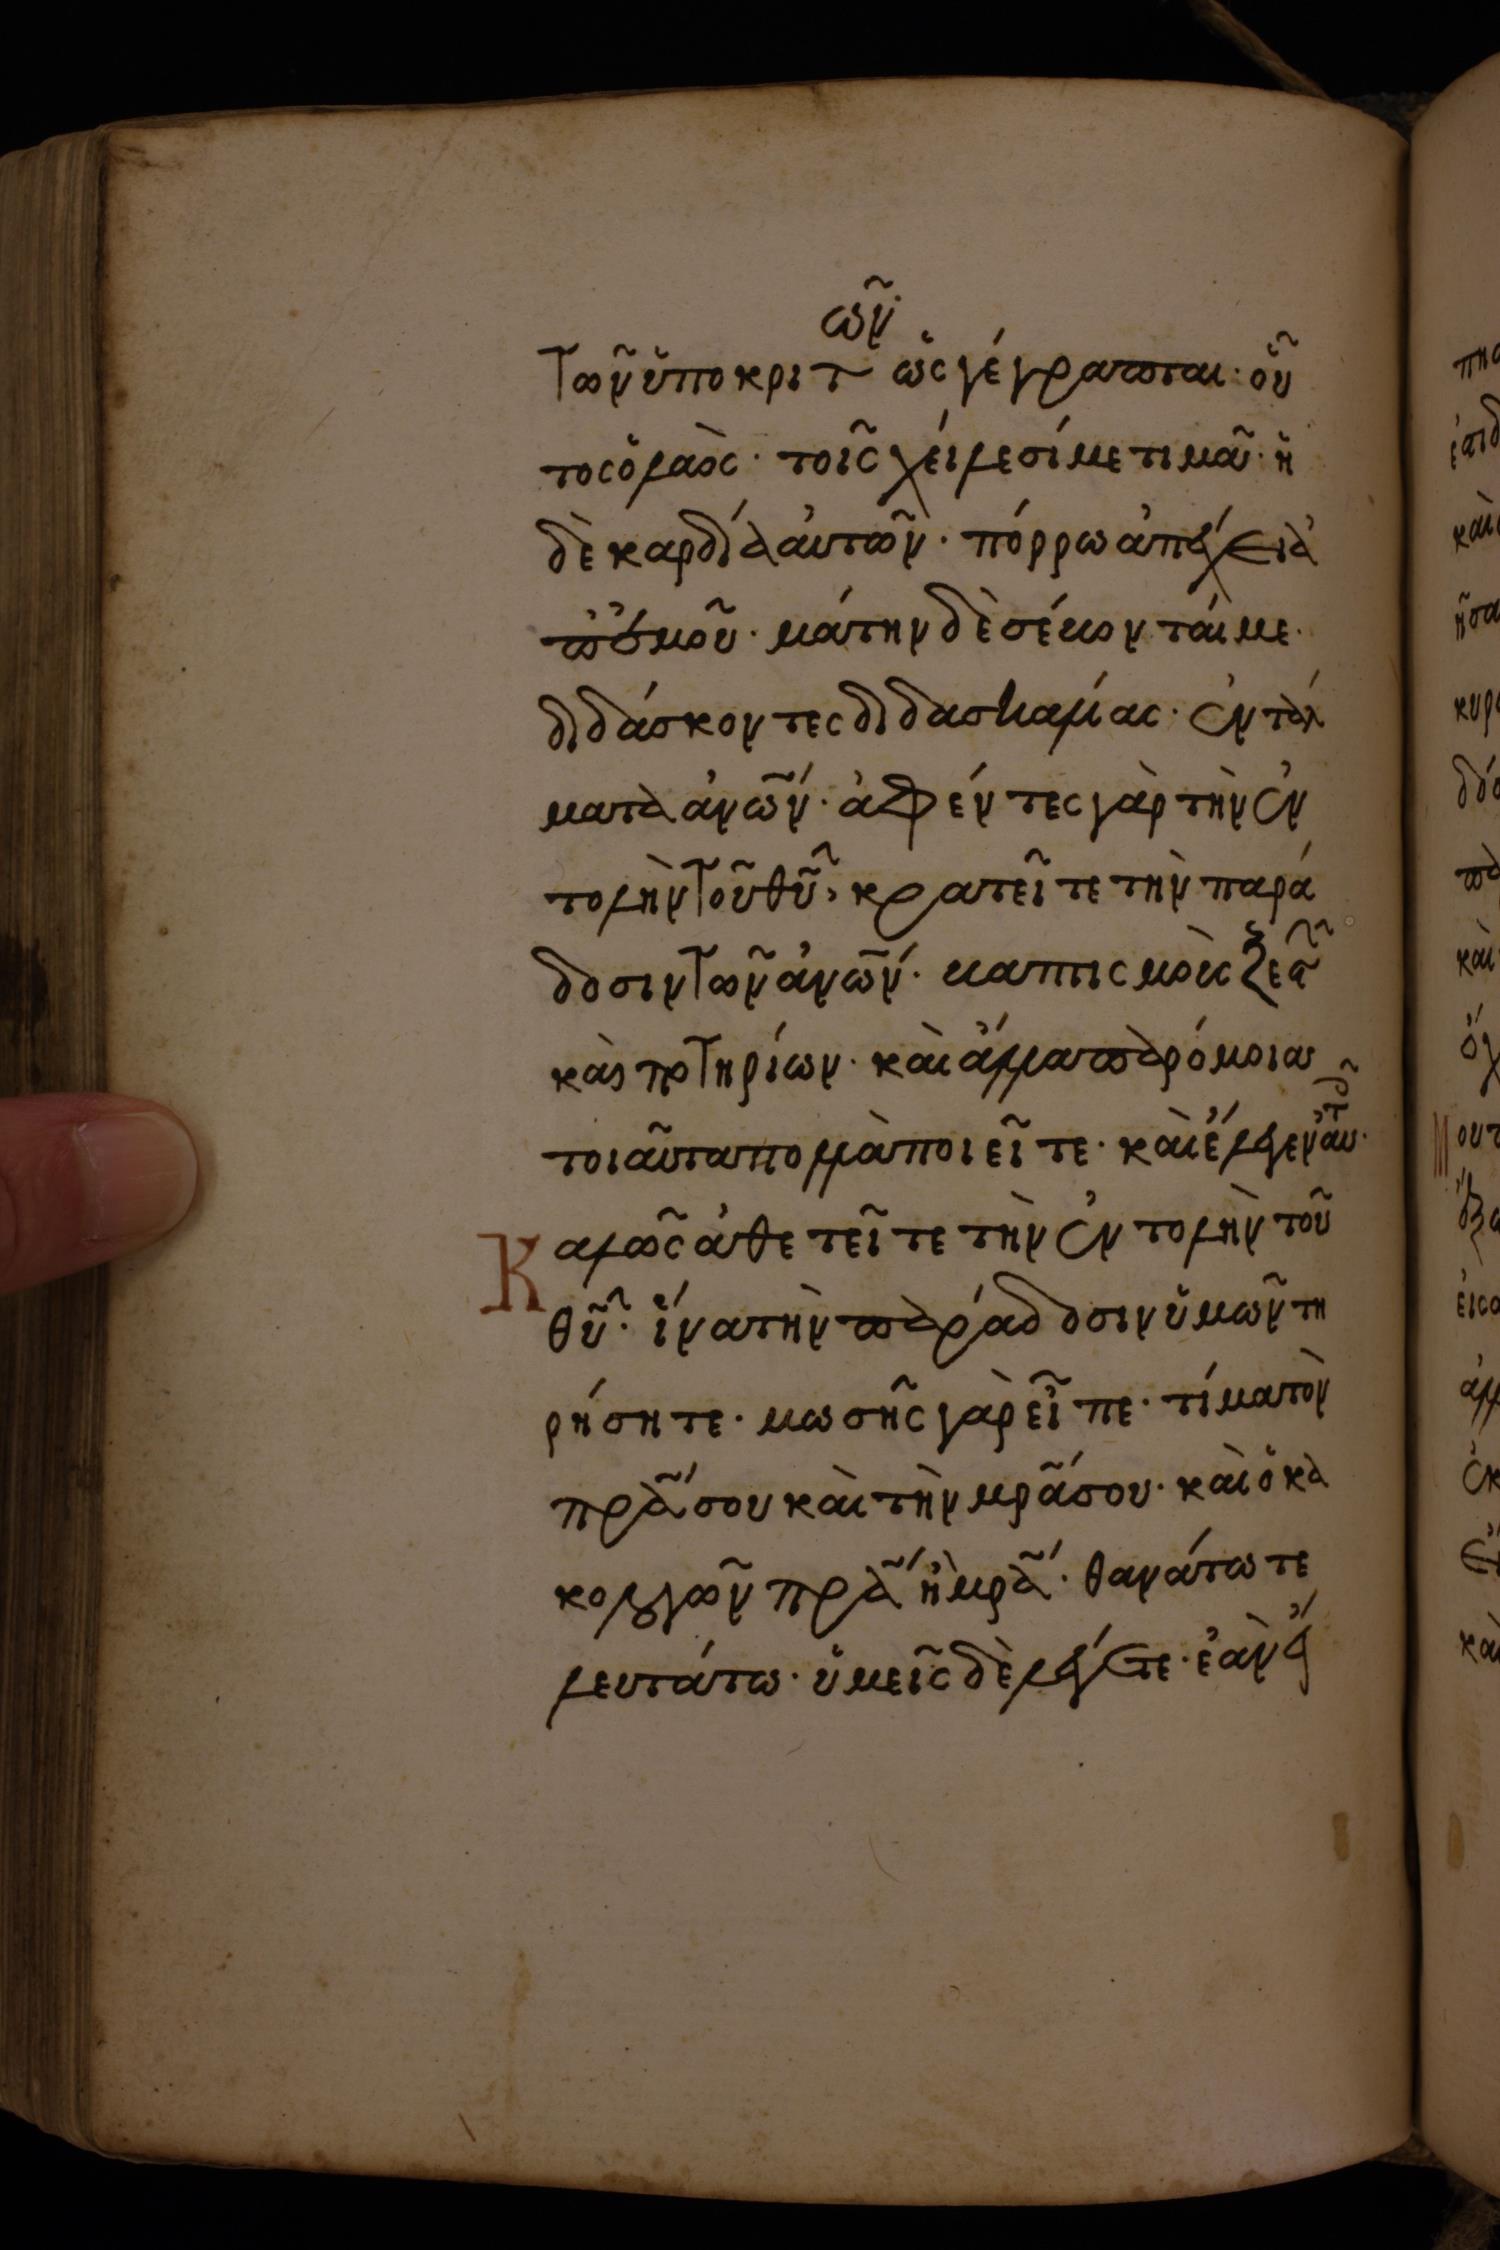 τῶν ὑποκριτῶν· ὡς γέγραπται· οὗ
τος ὁ λαὸς· τοῖς χείλεσί με τιμᾶ· ἡ
δὲ καρδία αὐτῶν· πόρρω ἀπέχει ἀ
π' ἐμοῦ· μάτην δὲ σέβονταί με·
διδάσκοντες διδασκαλίας· ἐντάλ
ματα ἀν̅ω̅ν· ἀφέντες γὰρ τὴν ἐν
τολὴν τοῦ θ̅υ̅, κρατεῖτε τὴν παρά
δοσιν τῶν ἀν̅ω̅ν· βαπτισμοὺς ξεστῶν
καὶ ποτηρίων· καὶ ἄλλα παρόμοια
τοιαῦτα πολλὰ ποιεῖτε· καὶ ἔλεγεν αὐτοῖς·
Καλῶς ἀθετεῖτε τὴν ἐντολὴν τοῦ
θ̅υ̅· ἵνα τὴν παράδοσιν ὑμῶν τη
ρήσητε· μωσῆς γὰρ εἶπε· τίμα τὸν
π̅ρ̅α σου καὶ τὴν μ̅ρ̅α σου· καὶ ὁ κα
κολογῶν π̅ρ̅α ἢ μ̅ρ̅α· θανάτω τε
λευτάτω· ὑμεῖς δὲ λέγετε· ἐὰν εἴ